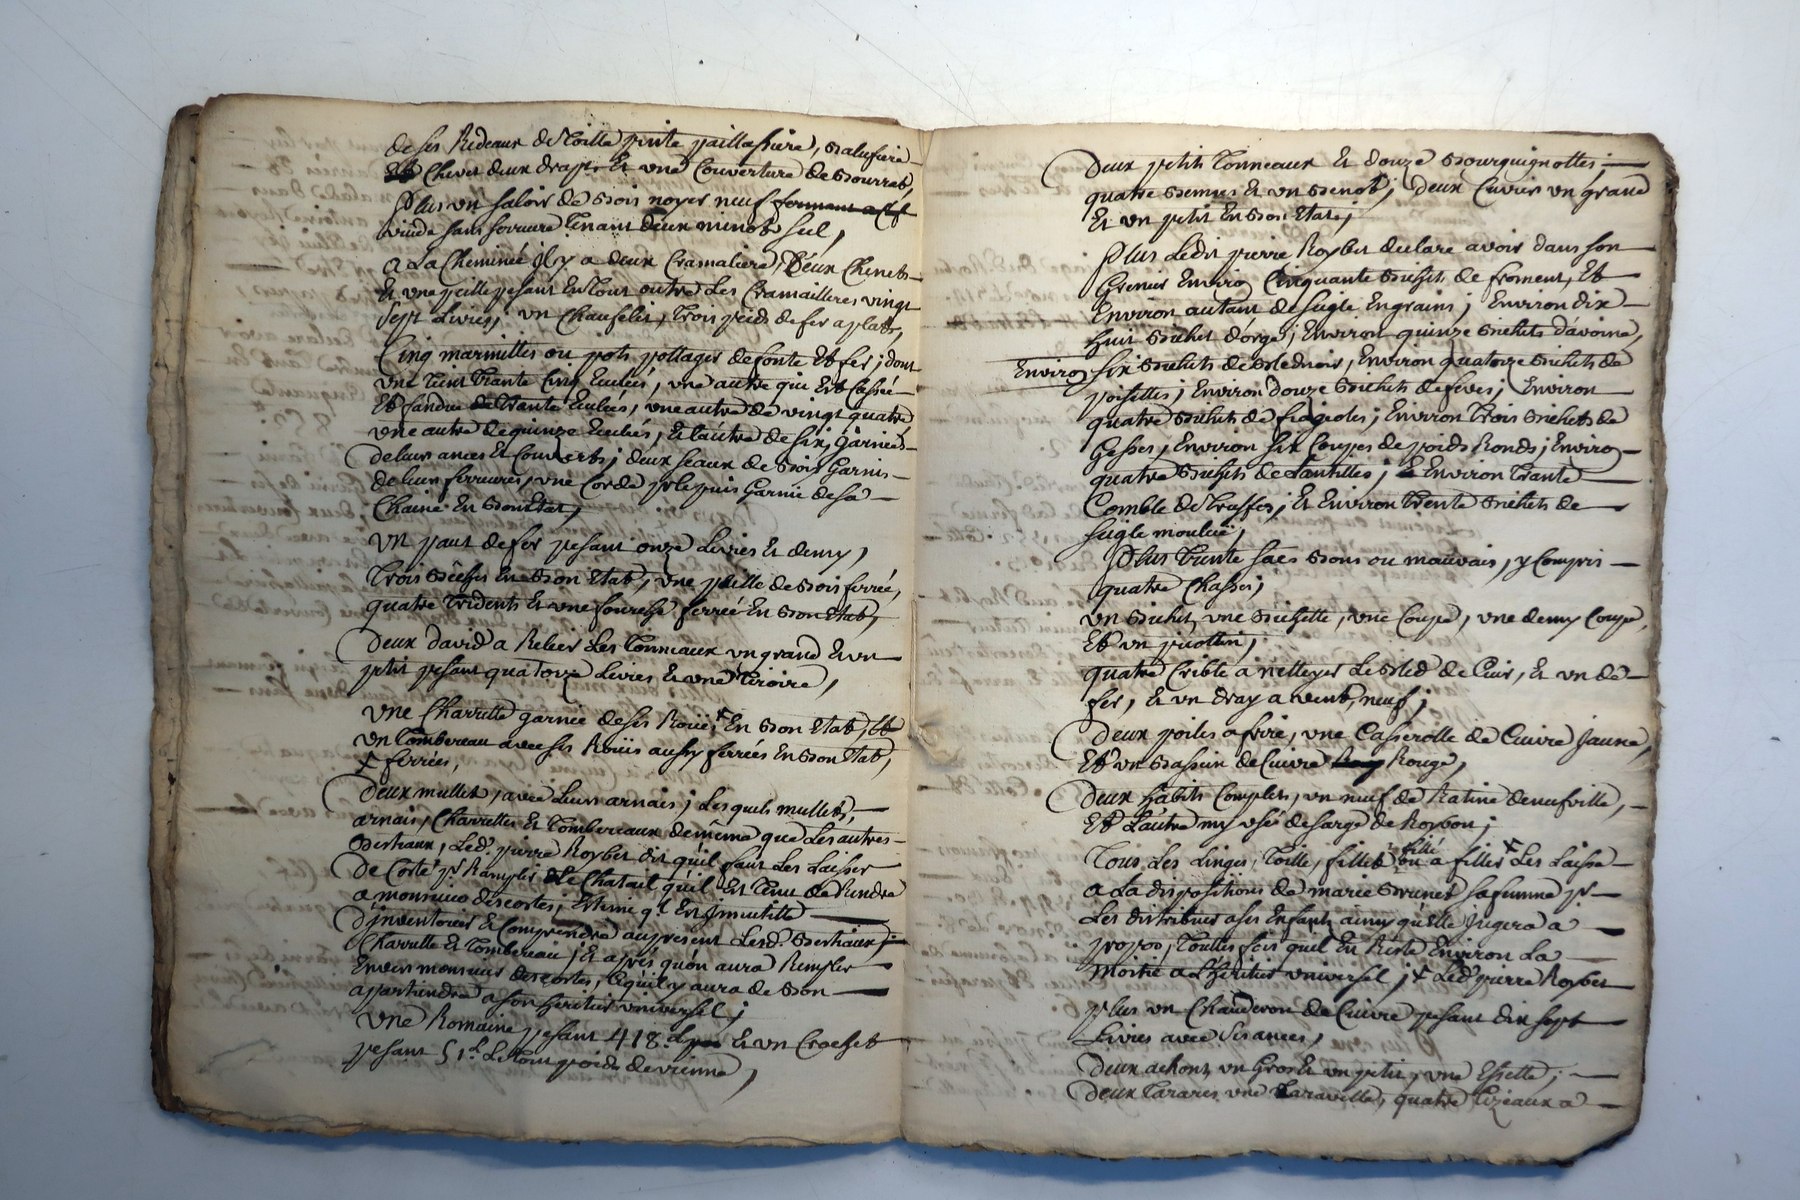 de ses Rideaux de Toille peinte paillassiere, Balufiere
Chevet deux draps Et une Couverture de Bourret,
Plus un saloir de Bois noyer neuf formant a clef
vuide sans serrure Tenant deux minots sel,
a La Cheminée jl y a deux Cramaliere, Deux Chenets
Et une paille pesant En Tout outre Les Cramailleres vingt
sept Livres; un Chaufelit, Trois pieds de fer a plats,
Cinq marmittes ou pots pottager de fonte Et fer; dont
une Tient Trante Cinq Eculéés, une autre qui Est Cassée
Et fandue de Trante Eculées, une autre de vingt quatre,
une autre de quinze Eculées, Et lautre de six, Garnies
de Leurs ances Et Couverts; deux seaux de Bois Garnis
de Leur ferrures, une Corde pr le puis Garnie de sa
Chaine En Bon Etat,
un paut de fer pesant onze Livres Et demy,
Trois Bêches En Bon Etat, une paille de Bois ferrée,
quatre Tridents Et une fourche ferrée En Bon Etat,
Deux david a Relier Les Tonneaux un grand Et un
petit pesant quatorze Livres Et une Tiroire,
une Charrette garnie de ses Roües + En Bon Etat, Et
un Tombereau avec ses Roües aussy ferrées En Bon Etat,
+ ferrées,
Deux mullets, avec Leurs arnais; Lesquels mullets,
arnais, Charrettes Et Tombereaux de même que Les autres
Bertiaux, Led. pierre Roybet dit qu'il faut Les Laisser
De Corté pr Ramplir Le Chatail qu'il Est Tenu de Rendre
a monsieur descortes, Estime q.l Est Jnnutille
D'jnventorier Et Comprendre au present Lesd. Bertiaux,
Charrette Et Tombereau; Et aprés qu'on aura Remply
Envers monsieur descortes, Ce qu'il y aura de Bon
apartiendra a son heritier universel;
une Romaine pesant 418.l Et un Crochet
pesant 51.l Le Tout poids de vienne,
Deux petits Tonneaux Et douze Bourguignottes;
quatre Bennes Et un Benot; deux Cuvier un grand
Et un petit En Bon Etat;
Plus Ledit pierre Roybet declare avoir dans son
Grenier Environ Cinquante Bichets de froment, Et
Environ autant de seigle En grains; Environ dix
huit Bichet d'orge; Environ quinze Bichets davoine,
Environ six Bichets de Bled noir, Environ quatorze Bichets de
poisettes; Environ douze Bichets de feves; Environ
quatre Bichets de fiageoles; Environ Trois Bichets de
Gesses, Environ six Coupes de poids Ronds; Environ
quatre Bichets de Lantilles; Environ Trante
Comble de Truffes; Et Environ Trente Bichets de
seigle moulüe;
Plus Trente sacs Bons ou mauvais, y Compris
quatre Chasses;
un Bichet, une Bichette, une Coupe, une demy Coupe,
Et un picottin;
quatre Crible a nettoyer Le Bled de Cuir, Et un de
fer, Et un dray a vent, neuf;
Deux poiles a frire, une Casserolle de Cuivre Jaune,
Et un Bassin de Cuivre Rouge,
Deux habits Complets, un neuf de Ratine de neufville,
Et Lautre my usé de sarge de Roybon;
Tous Les Linges, Toille, fillet filé ou a filler + Les Laisse
a La dispositions de marie Brunet sa femme pr
Les distribuer a ses Enfants ainsy qu'Elle Jugera a
propos, Touttes fois quil En Reste Environ La
moitié a L'heritier universel; + Led. pierre Roybet
plus un Chauderon de Cuivre pesant dix sept
Livres avec ses ances,
Deux achons, un Gros Et un petit, une Essette;
Deux Tarares, une Taravelle, quatre Cizeaux a